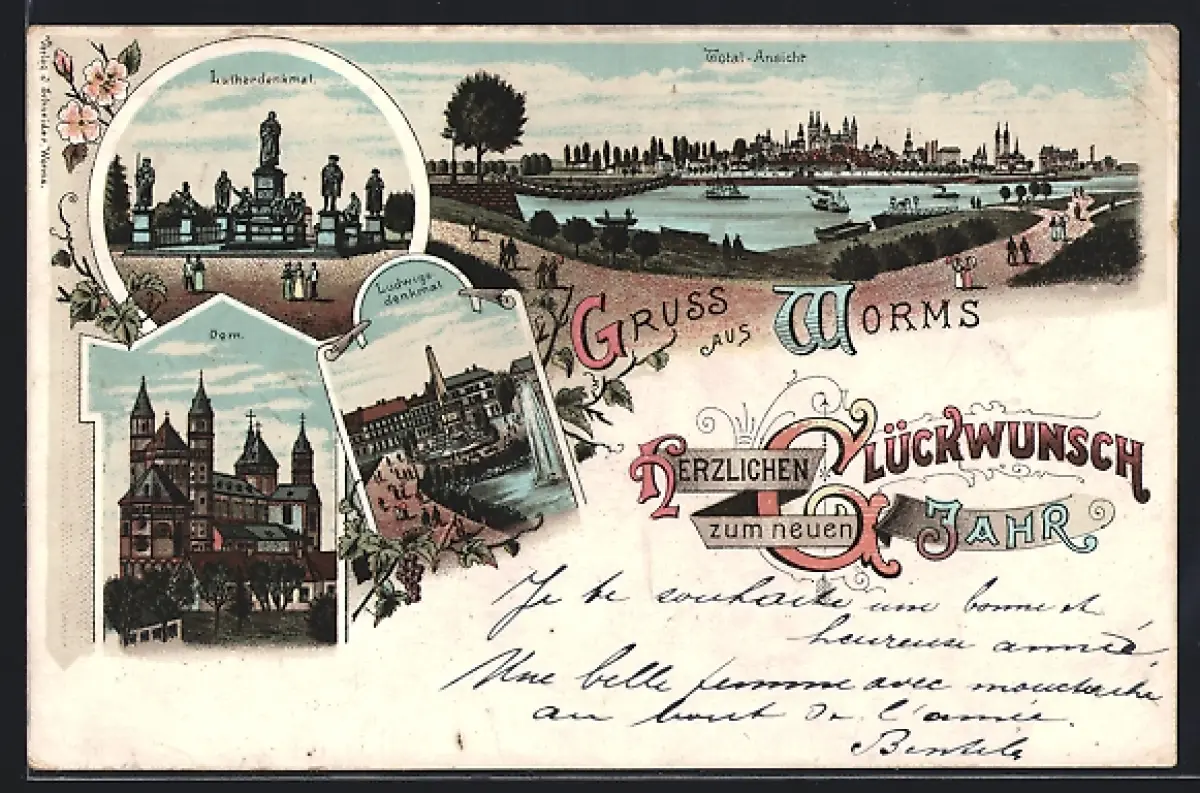 Verlag v. Schneider, Worms.
Lutherdenkmal.
Total-Ansicht
Ludwigs-
denkmal
Dom.
GRUSS AUS WORMS
HERZLICHEN GLÜCKWUNSCH
zum neuen JAHR
Je te souhaite une bonne et
heureuse année,
Une belle femme avec moustache
au bout de l'année.